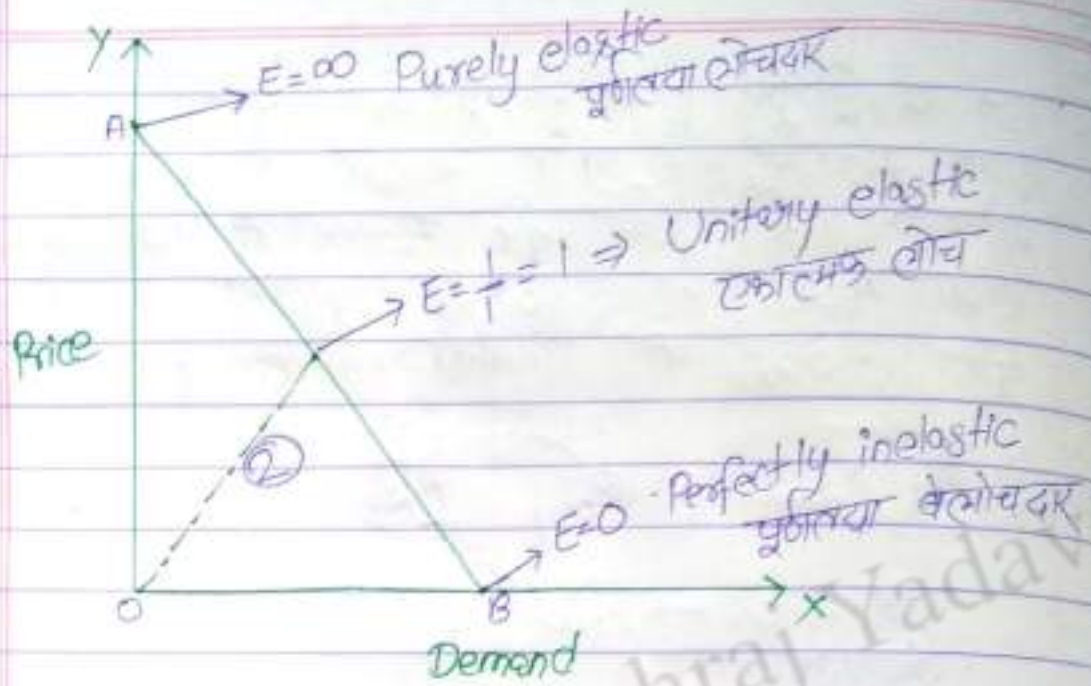 Y
A
E=∞ Purely elastic
पूर्णतया लोचदार
E=1/1=1 ⇒ Unitary elastic
एकात्मक लोच
Price
②
E=0 Perfectly inelastic
पूर्णतया बेलोचदार
O
B
X
Demand
Yadav